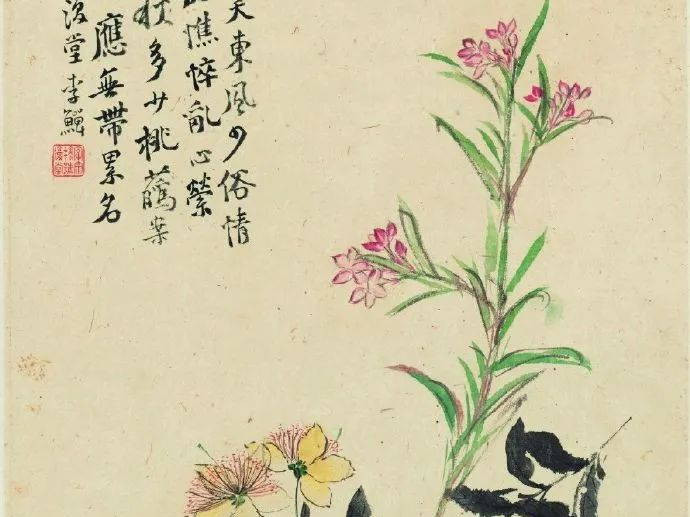 東風少俗情
憔悴亂心縈
多少桃 案
應無帶累名
復堂李鱓